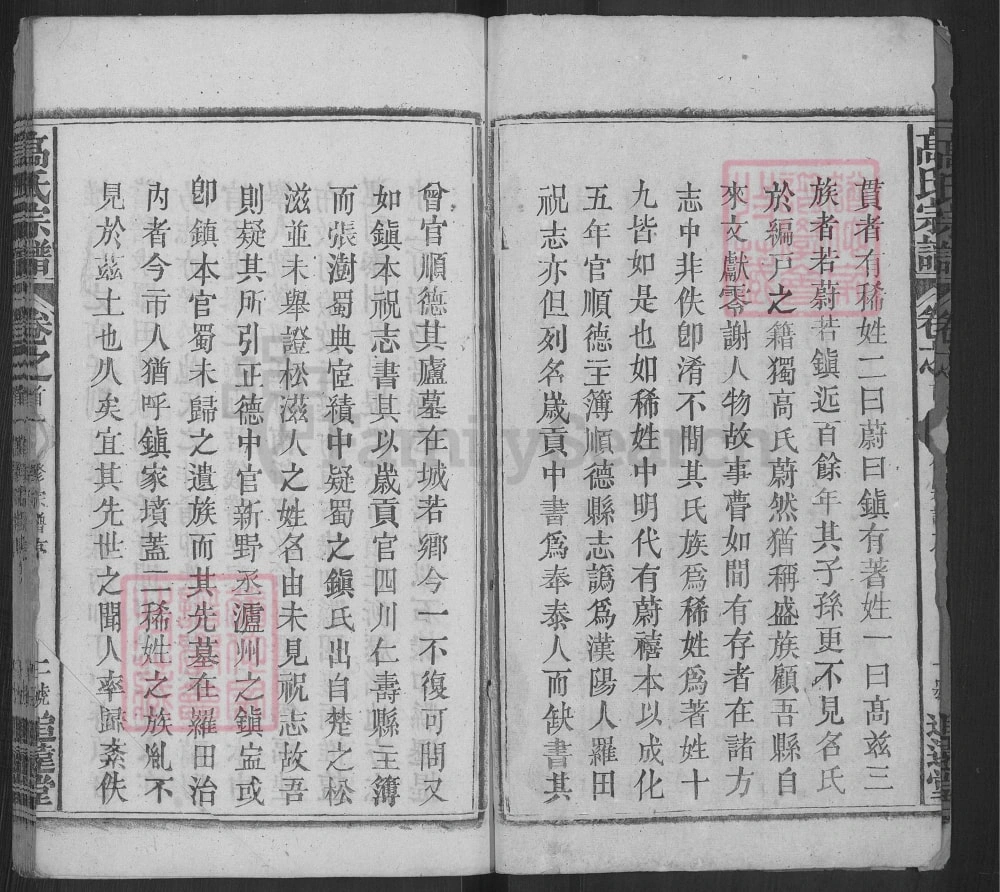 貰者有稀姓二曰蔚曰鎮有著姓一曰髙兹三
族者若蔚若鎮近百餘年其子孫更不見名氏
於編戸之籍獨高氏蔚然猶稱盛族顧吾縣自
來文獻零謝人物故事瞢如間有存者在諸方
志中非佚卽淆不間其氏族爲稀姓爲著姓十
九皆如是也如稀姓中明代有蔚禧本以成化
五年官順德主簿順德縣志譌爲漢陽人羅田
祝志亦但列名歲貢中書爲奉泰人而缺書其
曾官順德其廬墓在城若鄉今一不復可問又
如鎮本祝志書其以歲貢官四川仁壽縣主簿
而張澍蜀典宦績中疑蜀之鎮氏出自楚之松
滋並未舉證松滋人之姓名由未見祝志故吾
則疑其所引正德中官新野丞瀘州之鎮寍或
卽鎮本官蜀未歸之遺族而其先墓在羅田治
內者今市人猶呼鎮家墳蓋二稀姓之族胤不
見於茲土也久矣宜其先世之聞人率歸紊佚
高氏宗譜
卷之首
修宗譜序
追遠堂
FamilySearch